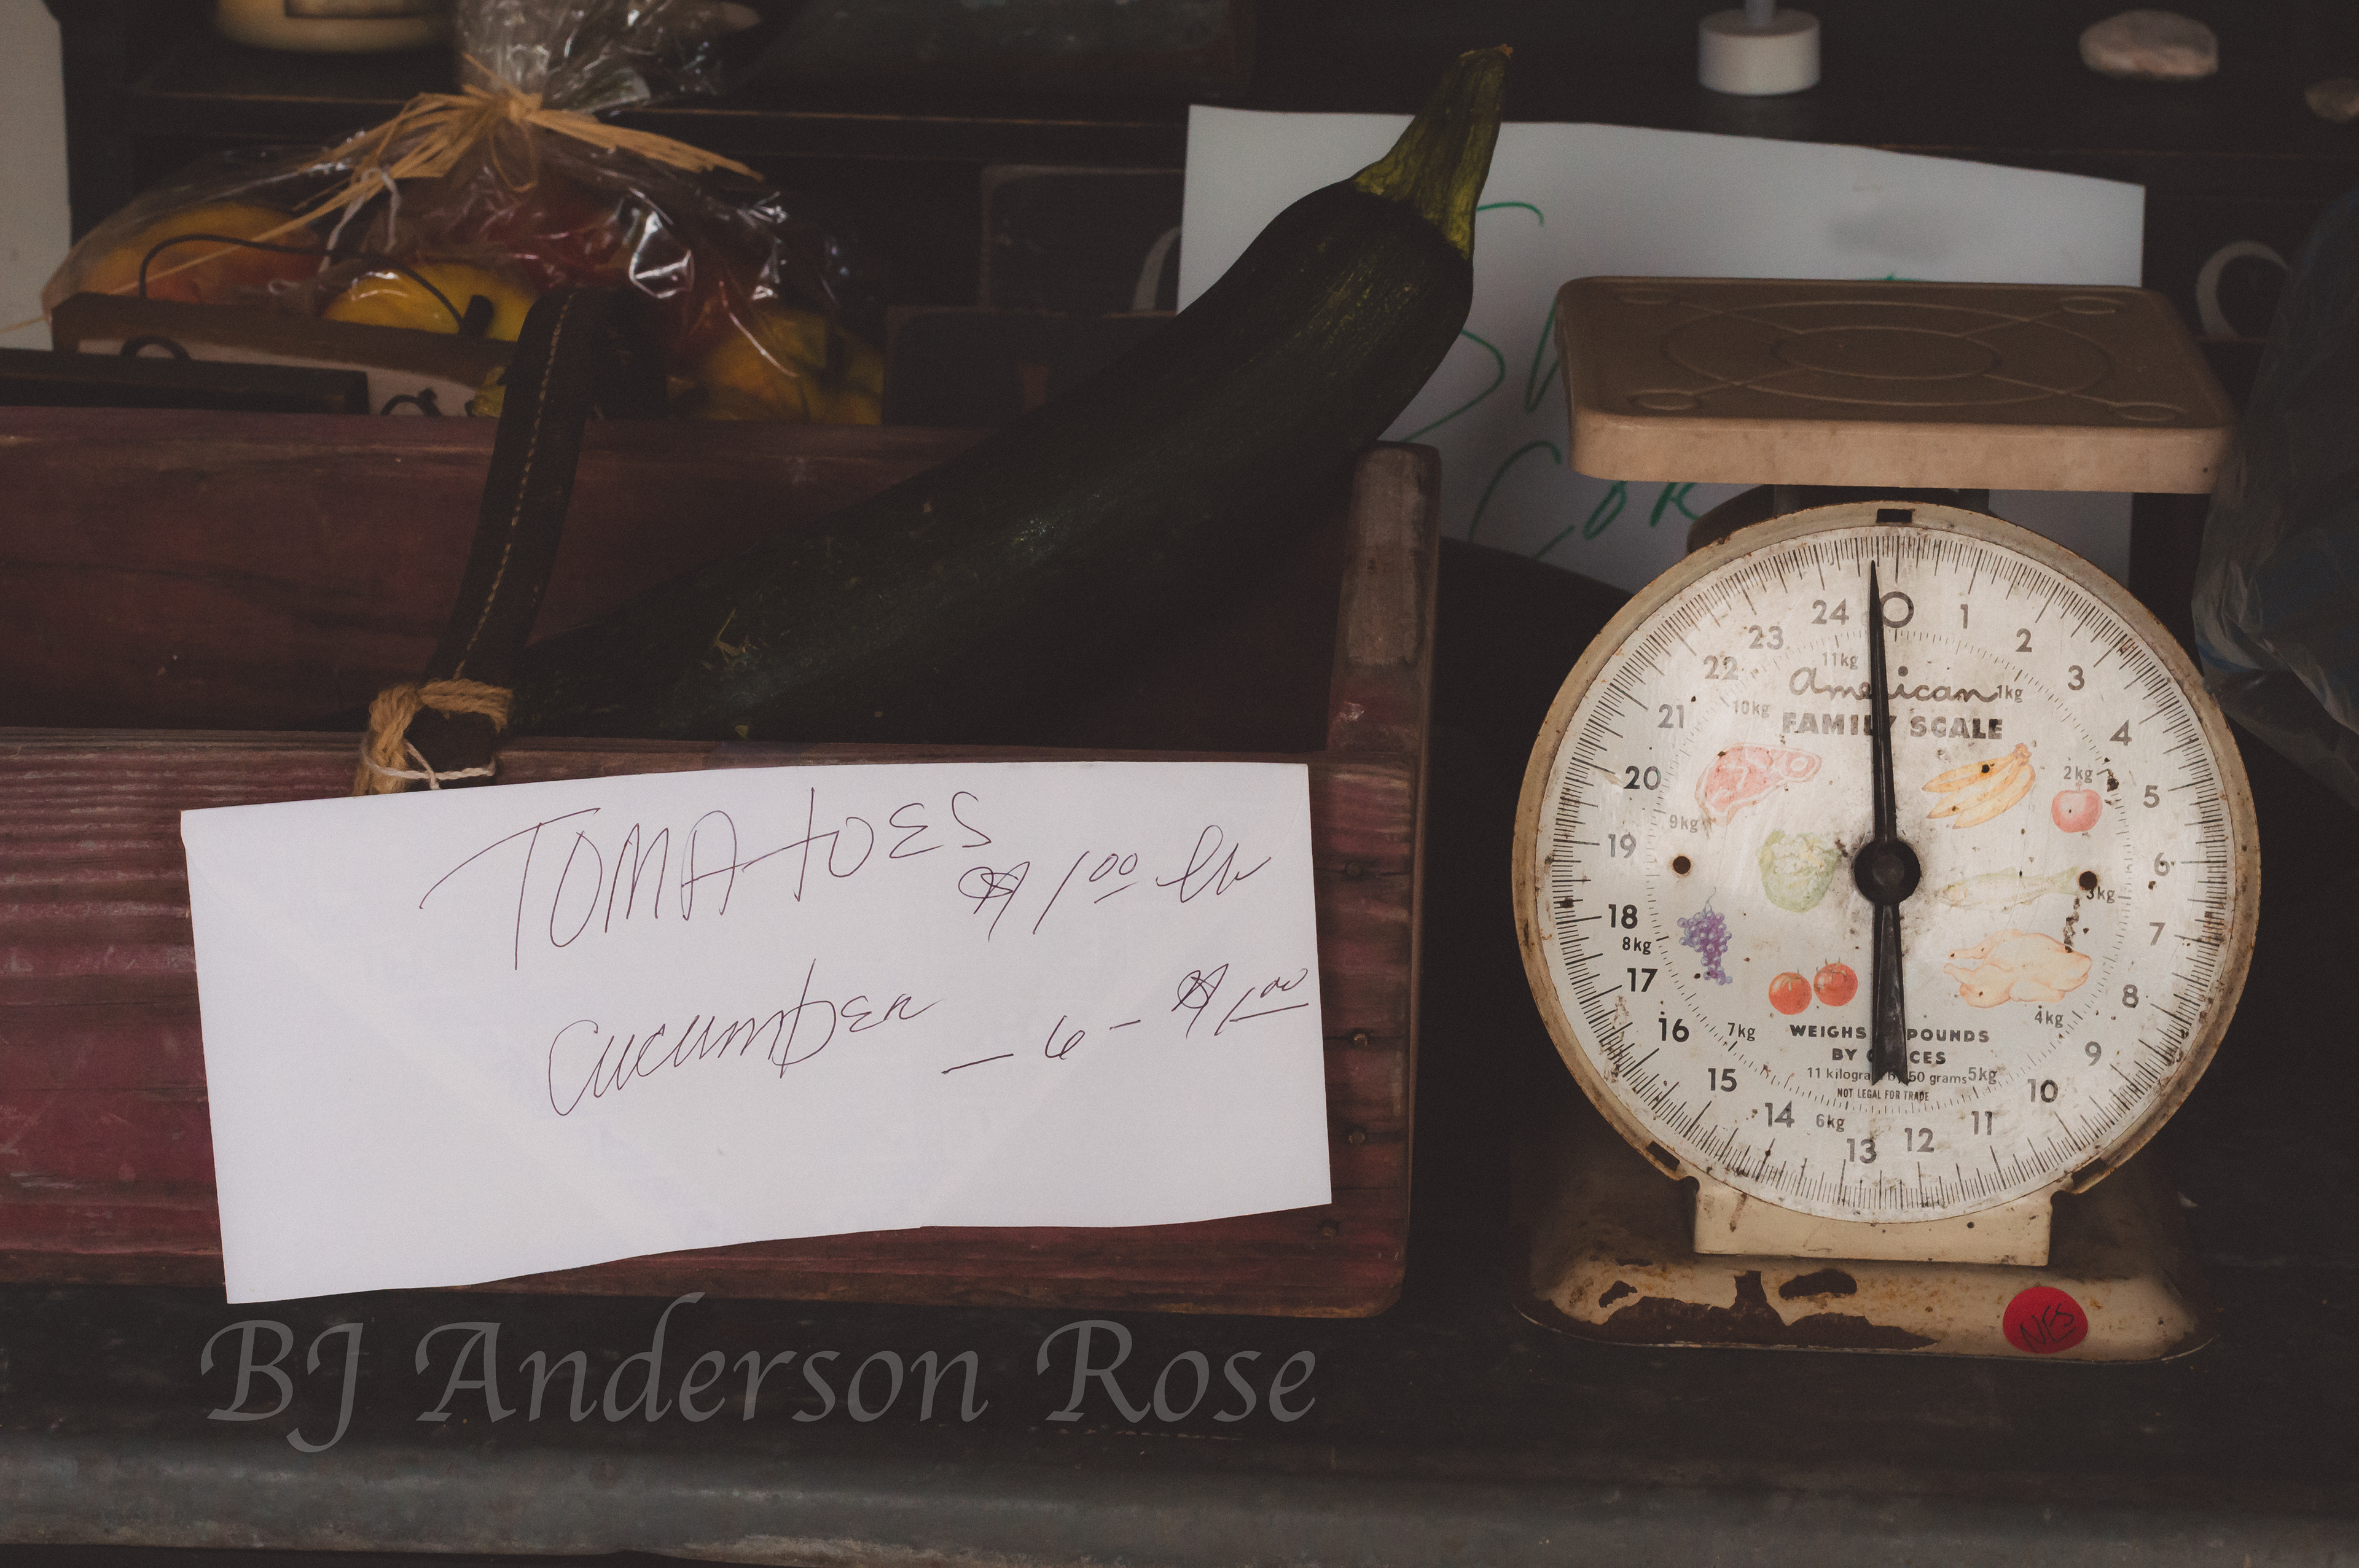 TOMATOES
$1.00 lb
CUCUMBER – 6 – $1.00
COR
24 0 1
23 2
22 11kg 3
American 1kg
FAMILY SCALE
21 10kg 4
20 2kg 5
9kg
19 6
3kg
18 7
8kg
17 8
4kg
16 7kg 9
WEIGHS POUNDS
BY OUNCES
11 kilograms by 50 grams 5kg
NOT LEGAL FOR TRADE
15 10
14 6kg 11
13 12
NFS
BJ Anderson Rose